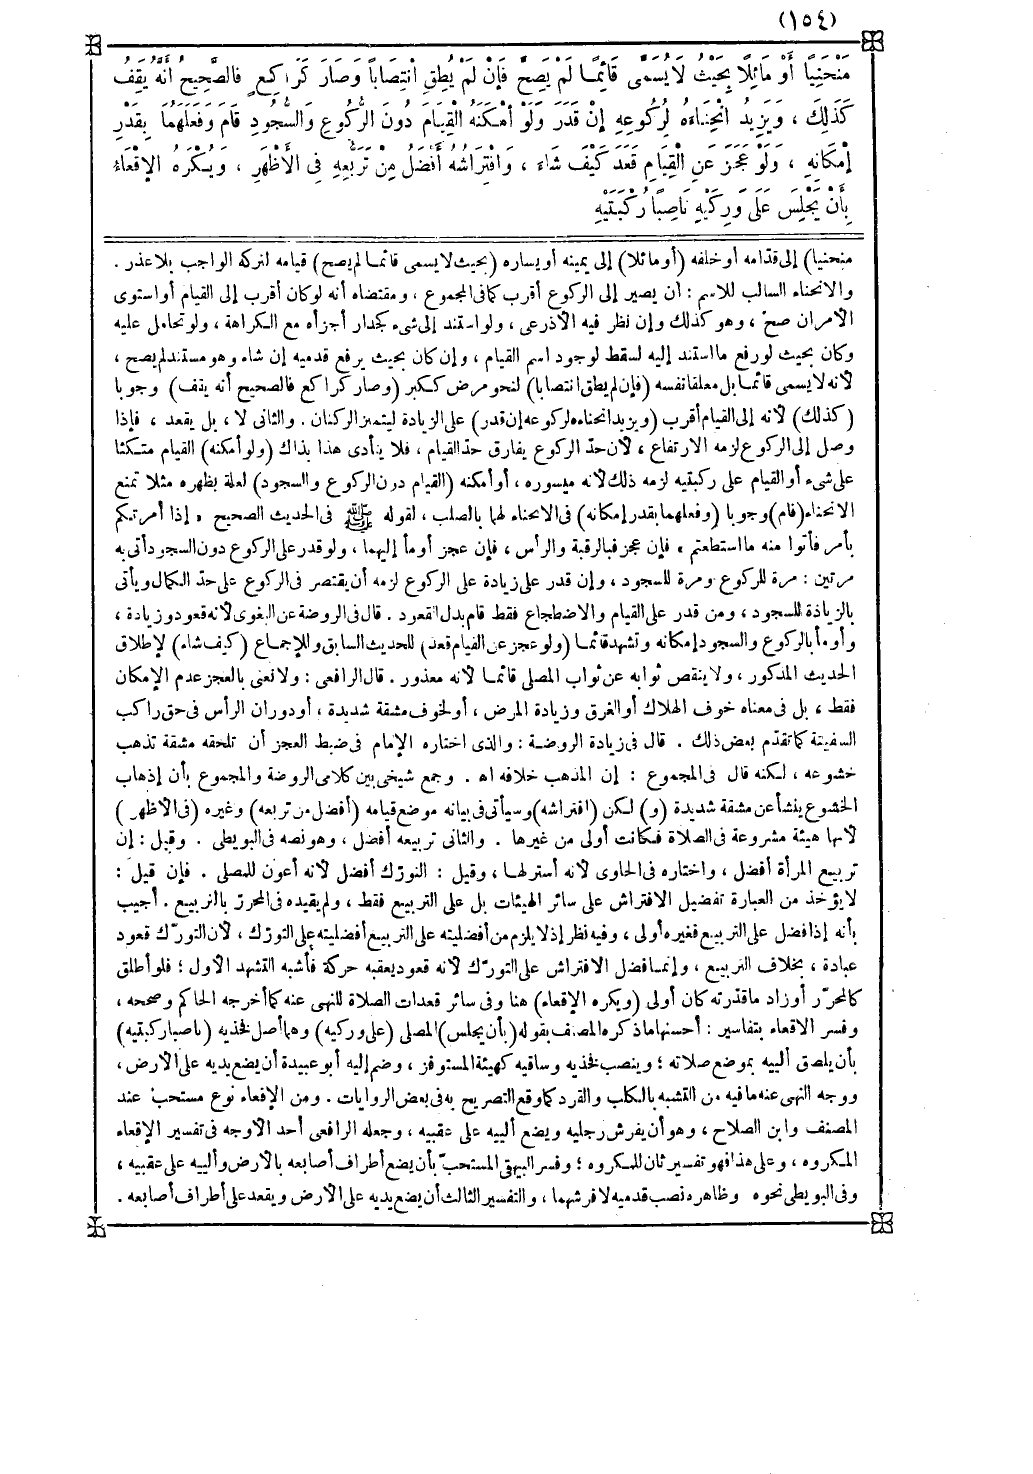 (١٥٤)
مُنْحَنِيًا أَوْ مَائِلًا بِحَيْثُ لَا يُسَمَّى قَائِمًا لَمْ يَصِحَّ فَإِنْ لَمْ يُطِقِ انْتِصَابًا وَصَارَ كَرَاكِعٍ فَالصَّحِيحُ أَنَّهُ يَقِفُ
كَذَلِكَ ، وَيَزِيدُ انْحِنَاءَهُ لِرُكُوعِهِ إِنْ قَدَرَ وَلَوْ أَمْكَنَهُ الْقِيَامُ دُونَ الرُّكُوعِ وَالسُّجُودِ قَامَ وَفَعَلَهُمَا بِقَدْرِ
إِمْكَانِهِ ، وَلَوْ عَجَزَ عَنِ الْقِيَامِ قَعَدَ كَيْفَ شَاءَ ، وَافْتِرَاشُهُ أَفْضَلُ مِنْ تَرَبُّعِهِ فِي الْأَظْهَرِ ، وَيُكْرَهُ الْإِقْعَاءُ
بِأَنْ يَجْلِسَ عَلَى وَرِكَيْهِ نَاصِبًا رُكْبَتَيْهِ
منحنيا) إلى قدّامه أو خلفه (أو مائلا) إلى يمينه أو يساره (بحيث لا يسمى قائما لم يصح) قيامه لتركه الواجب بلا عذر .
والانحناء السالب للاسم : أن يصير إلى الركوع أقرب كما فى المجموع ، ومقتضاه أنه لو كان أقرب إلى القيام أو استوى
الأمران صحّ ، وهو كذلك وإن نظر فيه الأذرعى ، ولو استند إلى شىء كجدار أجزأه مع الكراهة ، ولو تحامل عليه
وكان بحيث لو رفع ما استند إليه لسقط لوجود اسم القيام ، وإن كان بحيث يرفع قدميه إن شاء وهو مستند لم يصح ،
لأنه لا يسمى قائما بل معلقا نفسه (فإن لم يطق انتصابا) لنحو مرض ككبر (وصار كراكع فالصحيح أنه يقف) وجوبا
(كذلك) لأنه إلى القيام أقرب (ويزيد انحناءه لركوعه إن قدر) على الزيادة ليتميز الركنان . والثانى لا ، بل يقعد ، فإذا
وصل إلى الركوع لزمه الارتفاع ، لأن حدّ الركوع يفارق حدّ القيام ، فلا يتأدى هذا بذاك (ولو أمكنه) القيام متكئا
على شىء أو القيام على ركبتيه لزمه ذلك لأنه ميسوره ، أو أمكنه (القيام درن الركوع والسجود) لعلة بظهره مثلا تمنع
الانحناء (قام) وجوبا (وفعلهما بقدر إمكانه) فى الانحناء لهما بالصلب ، لقوله ﷺ فى الحديث الصحيح « إذا أمرتكم
بأمر فأتوا منه ما استطعتم » فإن عجز فبالرقبة والرأس ، فإن عجز أومأ إليهما ، ولو قدر على الركوع دون السجود أتى به
مرتين : مرة للركوع ومرة للسجود ، وإن قدر على زيادة على الركوع لزمه أن يقتصر فى الركوع على حدّ الكمال ويأتى
بالزيادة للسجود ، ومن قدر على القيام والاضطجاع فقط قام بدل القعود . قال فى الروضة عن البغوى لأنه قعود وزيادة ،
وأومأ بالركوع والسجود إمكانه وتشهد قائما (ولو عجز عن القيام قعد) للحديث السابق وللإجماع (كيف شاء) لإطلاق
الحديث المذكور ، ولا ينقص ثوابه عن ثواب المصلى قائما لأنه معذور . قال الرافعى : ولا نعنى بالعجز عدم الإمكان
فقط ، بل فى معناه خوف الهلاك أو الغرق وزيادة المرض ، أو لخوف مشقة شديدة ، أو دوران الرأس فى حق راكب
السفينة كما تقدّم بعض ذلك . قال فى زيادة الروضة : والذى اختاره الإمام فى ضبط العجز أن تلحقه مشقة تذهب
خشوعه ، لكنه قال فى المجموع : إن المذهب خلافه اه . وجمع شيخى بين كلامى الروضة والمجموع بأن إذهاب
الخشوع ينشأ عن مشقة شديدة (و) لكن (افتراشه) وسيأتى فى بيانه موضع قيامه (أفضل من تربعه) وغيره (فى الأظهر)
لأنها هيئة مشروعة فى الصلاة فكانت أولى من غيرها . والثانى تربيعه أفضل ، وهو نصه فى البويطى . وقيل : إن
تربيع المرأة أفضل ، واختاره فى الحاوى لأنه أستر لها ، وقيل : التورّك أفضل لأنه أعون للمصلى . فإن قيل :
لا يؤخذ من العبارة تفضيل الافتراش على سائر الهيئات بل على التربيع فقط ، ولم يقيده فى المحرر بالتربيع . أجيب
بأنه إذا فضل على التربيع فغيره أولى ، وفيه نظر إذ لا يلزم من أفضليته على التربيع أفضليته على التورّك ، لأن التورّك قعود
عبادة ، بخلاف التربيع ، وإنما فضل الافتراش على التورّك لأنه قعود يعقبه حركة فأشبه التشهد الأول ؛ فلو أطلق
كالمحرّر أو زاد ما قدرته كان أولى (ويكره الإقعاء) هنا وفى سائر قعدات الصلاة للنهى عنه كما أخرجه الحاكم وصححه ،
وفسر الإقعاء بتفاسير : أحسنها ما ذكره المصنف بقوله (بأن يجلس) المصلى (على وركيه) وهما أصل فخذيه (ناصبا ركبتيه)
بأن يلصق ألييه بموضع صلاته ؛ وينصب فخذيه وساقيه كهيئة المستوفز ، وضم إليه أبو عبيدة أن يضع يديه على الأرض ،
ووجه النهى عنه ما فيه من التشبه بالكلب والقرد كما وقع التصريح به فى بعض الروايات . ومن الإقعاء نوع مستحبّ عند
المصنف وابن الصلاح ، وهو أن يفرش رجليه ويضع ألييه على عقبيه ، وجعله الرافعى أحد الأوجه فى تفسير الإقعاء
المكروه ، وعلى هذا فهو تفسير ثان للمكروه ؛ وفسر البيهقى المستحبّ بأن يضع أطراف أصابعه بالأرض وألييه على عقبيه ،
وفى البويطى نحوه وظاهره نصب قدميه لا فرشهما ، والتفسير الثالث أن يضع يديه على الأرض ويقعد على أطراف أصابعه .